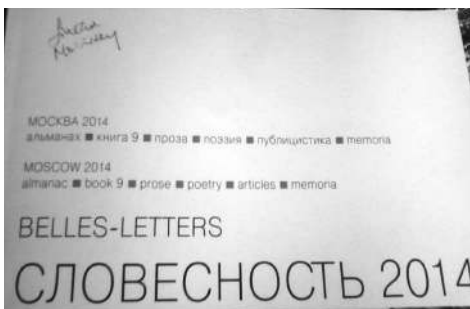 МОСКВА 2014
альманах ■ книга 9 ■ проза ■ поэзия ■ публицистика ■ memoria
MOSCOW 2014
almanac ■ book 9 ■ prose ■ poetry ■ articles ■ memoria
BELLES-LETTERS
СЛОВЕСНОСТЬ 2014